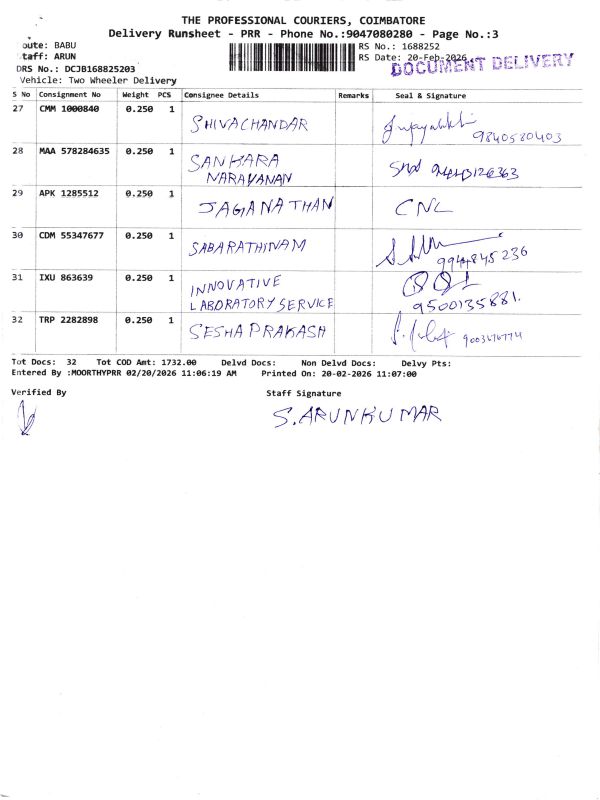 THE PROFESSIONAL COURIERS, COIMBATORE
Delivery Runsheet - PRR - Phone No.:9047080280 - Page No.:3
oute: BABU
taff: ARUN
DRS No.: DCJB168825203
Vehicle: Two Wheeler Delivery
RS No.: 1688252
RS Date: 20-Feb-2026
DOCUMENT DELIVERY
S No Consignment No Weight PCS Consignee Details Remarks Seal & Signature
27 CMM 1000840 0.250 1 SHIVACHANDAR 9840580403
28 MAA 578284635 0.250 1 SANKARA NARAYANAN
29 APK 1285512 0.250 1 JAGANATHAN CNL
30 CDM 55347677 0.250 1 SABARATHINAM 9944845236
31 IXU 863639 0.250 1 INNOVATIVE LABORATORY SERVICE 9500135881.
32 TRP 2282898 0.250 1 SESHA PRAKASH
Tot Docs: 32 Tot COD Amt: 1732.00 Delvd Docs: Non Delvd Docs: Delvy Pts:
Entered By :MOORTHYPRR 02/20/2026 11:06:19 AM Printed On: 20-02-2026 11:07:00
Verified By Staff Signature
S.ARUNKUMAR